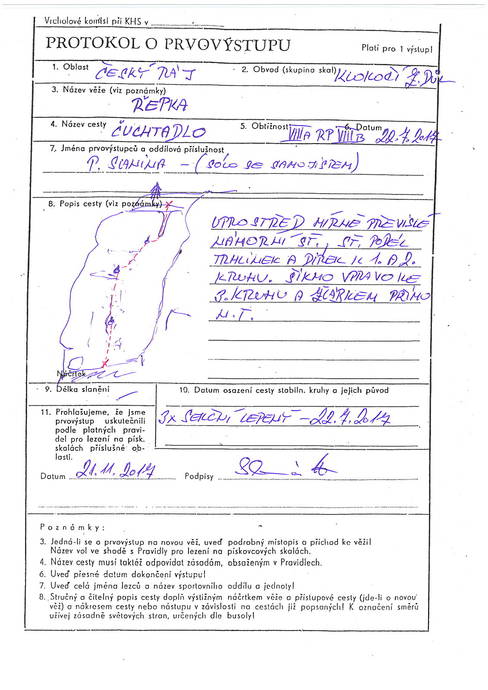 Vrcholové komisi při KHS v
PROTOKOL O PRVOVÝSTUPU
Platí pro 1 výstup!
1. Oblast ČESKÝ RÁJ
2. Obvod (skupina skal) KLOKOČÍ
3. Název věže (viz poznámky)
ŘEPKA
4. Název cesty ČUCHTADLO
5. Obtížnost VIIIA RP VIIIB
6. Datum 22.7.2017
7. Jména prvovýstupců a oddílová příslušnost
P. SLANINA - (SÓLO SE SAMOJIŠTĚM)
8. Popis cesty (viz poznámky)
UPROSTŘED MÍRNĚ PŘEVISLÉ
NÁHORNÍ ST., ST. PODÉL
TRHLINEK A DÍREK K 1. A 2.
KRUHU. ŠIKMO VPRAVO KE
3. KRUHU A PŘÍMO
N.T.
Náčrtek
9. Délka slanění
10. Datum osazení cesty stabiln. kruhy a jejich původ
11. Prohlašujeme, že jsme
prvovýstup uskutečnili
podle platných pravi-
del pro lezení na písk.
skalách příslušné ob-
lasti.
3x SEKČNÍ LEPENÝ - 22.7.2017
Datum 21.11.2017
Podpisy
Poznámky:
3. Jedná-li se o prvovýstup na novou věž, uveď podrobný místopis a příchod ke věži!
Název vol ve shodě s Pravidly pro lezení na pískovcových skalách.
4. Název cesty musí taktéž odpovídat zásadám, obsaženým v Pravidlech.
6. Uveď přesné datum dokončení výstupu!
7. Uveď celá jména lezců a název sportovního oddílu a jednoty!
8. Stručný a čitelný popis cesty doplň výstižným náčrtkem věže a přístupové cesty (jde-li o novou
věž) a nákresem cesty nebo nástupu v závislosti na cestách již popsaných! K označení směrů
užívej zásadně světových stran, určených dle busoly!